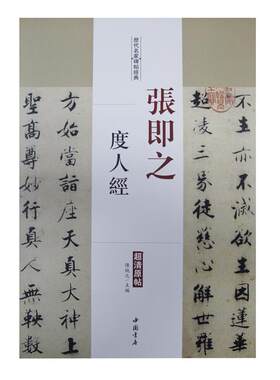 不生亦不滅欲生因蓮華
超凌三界徒慈心解世羅
歷代名家碑帖經典
張即之
度人經
超清原帖
主編
中國書店
方始當詣座天真大
聖高尊妙行真人無鞅數